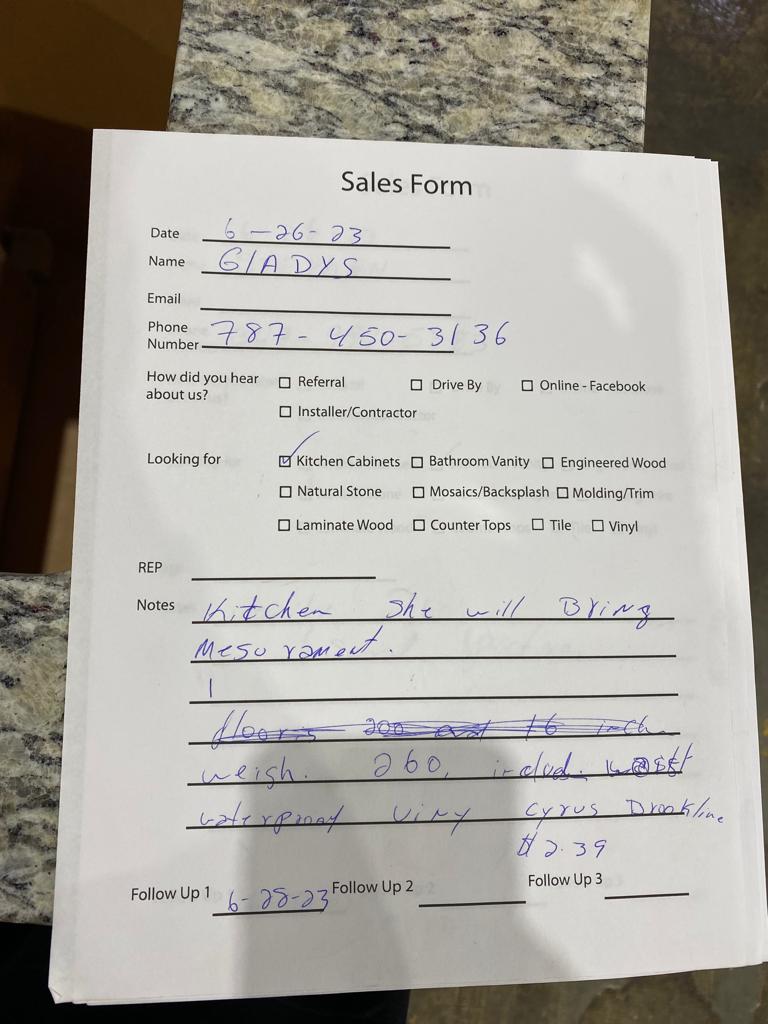 Sales Form
Date 6-26-23
Name GlADYS
Email
Phone Number 787-450-3136
How did you hear about us? ☐ Referral ☐ Drive By ☐ Online - Facebook
☐ Installer/Contractor
Looking for ☑ Kitchen Cabinets ☐ Bathroom Vanity ☐ Engineered Wood
☐ Natural Stone ☐ Mosaics/Backsplash ☐ Molding/Trim
☐ Laminate Wood ☐ Counter Tops ☐ Tile ☐ Vinyl
REP
Notes Kitchen She will Bring
Mesurament.
floor is 200 and 16 inch
weigh. 260, includ.
waterproof Viny Cyrus Drookline
$2.39
Follow Up 1 6-28-23 Follow Up 2 Follow Up 3